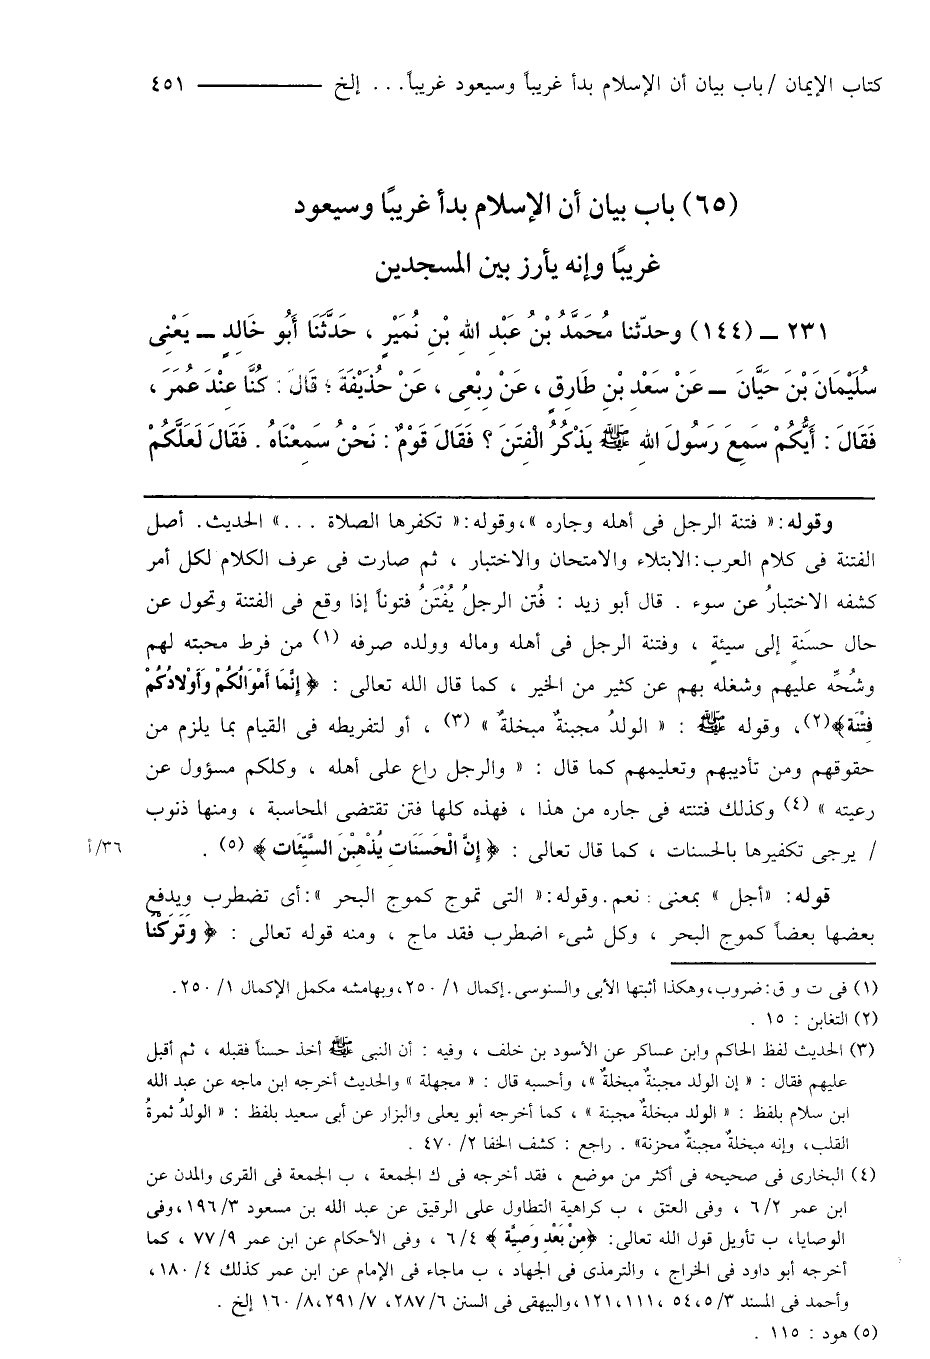 كتاب الإيمان / باب بيان أن الإسلام بدأ غريباً وسيعود غريباً... إلخ ——— ٤٥١
(٦٥) باب بيان أن الإسلام بدأ غريبًا وسيعود
غريبًا وإنه يأرز بين المسجدين
٢٣١ ــ (١٤٤) وحدّثنا مُحَمَّدُ بْنُ عَبْدِ اللهِ بْنِ نُمَيْرٍ ، حَدَّثَنَا أَبُو خَالِدٍ ــ يَعْنِى
سُلَيْمَانَ بْنَ حَيَّانَ ــ عَنْ سَعْدِ بْنِ طَارِقٍ ، عَنْ رِبْعِى ، عَنْ حُذَيْفَةَ ؛ قَالَ : كُنَّا عِنْدَ عُمَرَ ،
فَقَالَ : أَيُّكُمْ سَمِعَ رَسُولَ اللهِ ﷺ يَذْكُرُ الْفِتَنَ ؟ فَقَالَ قَوْمٌ : نَحْنُ سَمِعْنَاهُ . فَقَالَ لَعَلَّكُمْ
وقوله :« فتنة الرجل فى أهله وجاره »،وقوله:« تكفرها الصلاة ...» الحديث. أصل
الفتنة فى كلام العرب :الابتلاء والامتحان والاختبار ، ثم صارت فى عرف الكلام لكل أمر
كشفه الاختبارُ عن سوء . قال أبو زيد : فُتن الرجلُ يُفْتَنُ فتوناً إذا وقع فى الفتنة وتحول عن
حال حسَنةٍ إلى سيئةٍ ، وفتنة الرجل فى أهله وماله وولده صرفه (١) من فرط محبته لهم
وشُحِّه عليهم وشغله بهم عن كثير من الخير ، كما قال الله تعالى : ﴿ إِنَّمَا أَمْوَالُكُمْ وَأَوْلادُكُمْ
فِتْنَة﴾(٢)، وقوله ﷺ : « الولدُ مجبنةٌ مبخلةٌ » (٣) ، أو لتفريطه فى القيام بما يلزم من
حقوقهم ومن تأديبهم وتعليمهم كما قال : « والرجل راع على أهله ، وكلكم مسؤول عن
رعيته » (٤) وكذلك فتنته فى جاره من هذا ، فهذه كلها فتن تقتضى المحاسبة ، ومنها ذنوب
/ يرجى تكفيرها بالحسنات ، كما قال تعالى : ﴿ إِنَّ الْحَسَنَاتِ يُذْهِبْنَ السَّيِّئَات ﴾ (٥) .
٣٦/أ
قوله: «أجل » بمعنى : نعم.وقوله:« التى تموج كموج البحر »:أى تضطرب ويدفع
بعضها بعضاً كموج البحر ، وكل شىء اضطرب فقد ماج ، ومنه قوله تعالى : ﴿ وَتَرَكْنَا
(١) فى ت و ق:ضروب،وهكذا أثبتها الأبى والسنوسى.إكمال ١/ ٢٥٠،وبهامشه مكمل الإكمال ١/ ٢٥٠.
(٢) التغابن : ١٥ .
(٣) الحديث لفظ الحاكم وابن عساكر عن الأسود بن خلف ، وفيه : أن النبى ﷺ أخذ حسناً فقبله ، ثم أقبل
عليهم فقال : « إن الولد مجبنةٌ مبخلةٌ »، وأحسبه قال : « مجهلة » والحديث أخرجه ابن ماجه عن عبد الله
ابن سلام بلفظ : « الولد مبخلةٌ مجبنة » ، كما أخرجه أبو يعلى والبزار عن أبى سعيد بلفظ : « الولدُ ثمرةُ
القلب، وإنه مبخلةٌ مجبنةٌ محزنة» . راجع : كشف الخفا ٢/ ٤٧٠ .
(٤) البخارى فى صحيحه فى أكثر من موضع ، فقد أخرجه فى ك الجمعة ، ب الجمعة فى القرى والمدن عن
ابن عمر ٢/ ٦ ، وفى العتق ، ب كراهية التطاول على الرقيق عن عبد الله بن مسعود ٣/ ١٩٦،وفى
الوصايا، ب تأويل قول الله تعالى: ﴿مِنْ بَعْدِ وَصِيَّة ﴾ ٤/ ٦ ، وفى الأحكام عن ابن عمر ٩/ ٧٧ ، كما
أخرجه أبو داود فى الخراج ، والترمذى فى الجهاد ، ب ماجاء فى الإمام عن ابن عمر كذلك ٤/ ١٨٠ ،
وأحمد فى المسند ٣/ ٥، ٥٤، ١١١، ١٢١،والبيهقى فى السنن ٦/ ٢٨٧، ٧/ ٢٩١، ٨/ ١٦٠ إلخ .
(٥) هود : ١١٥ .